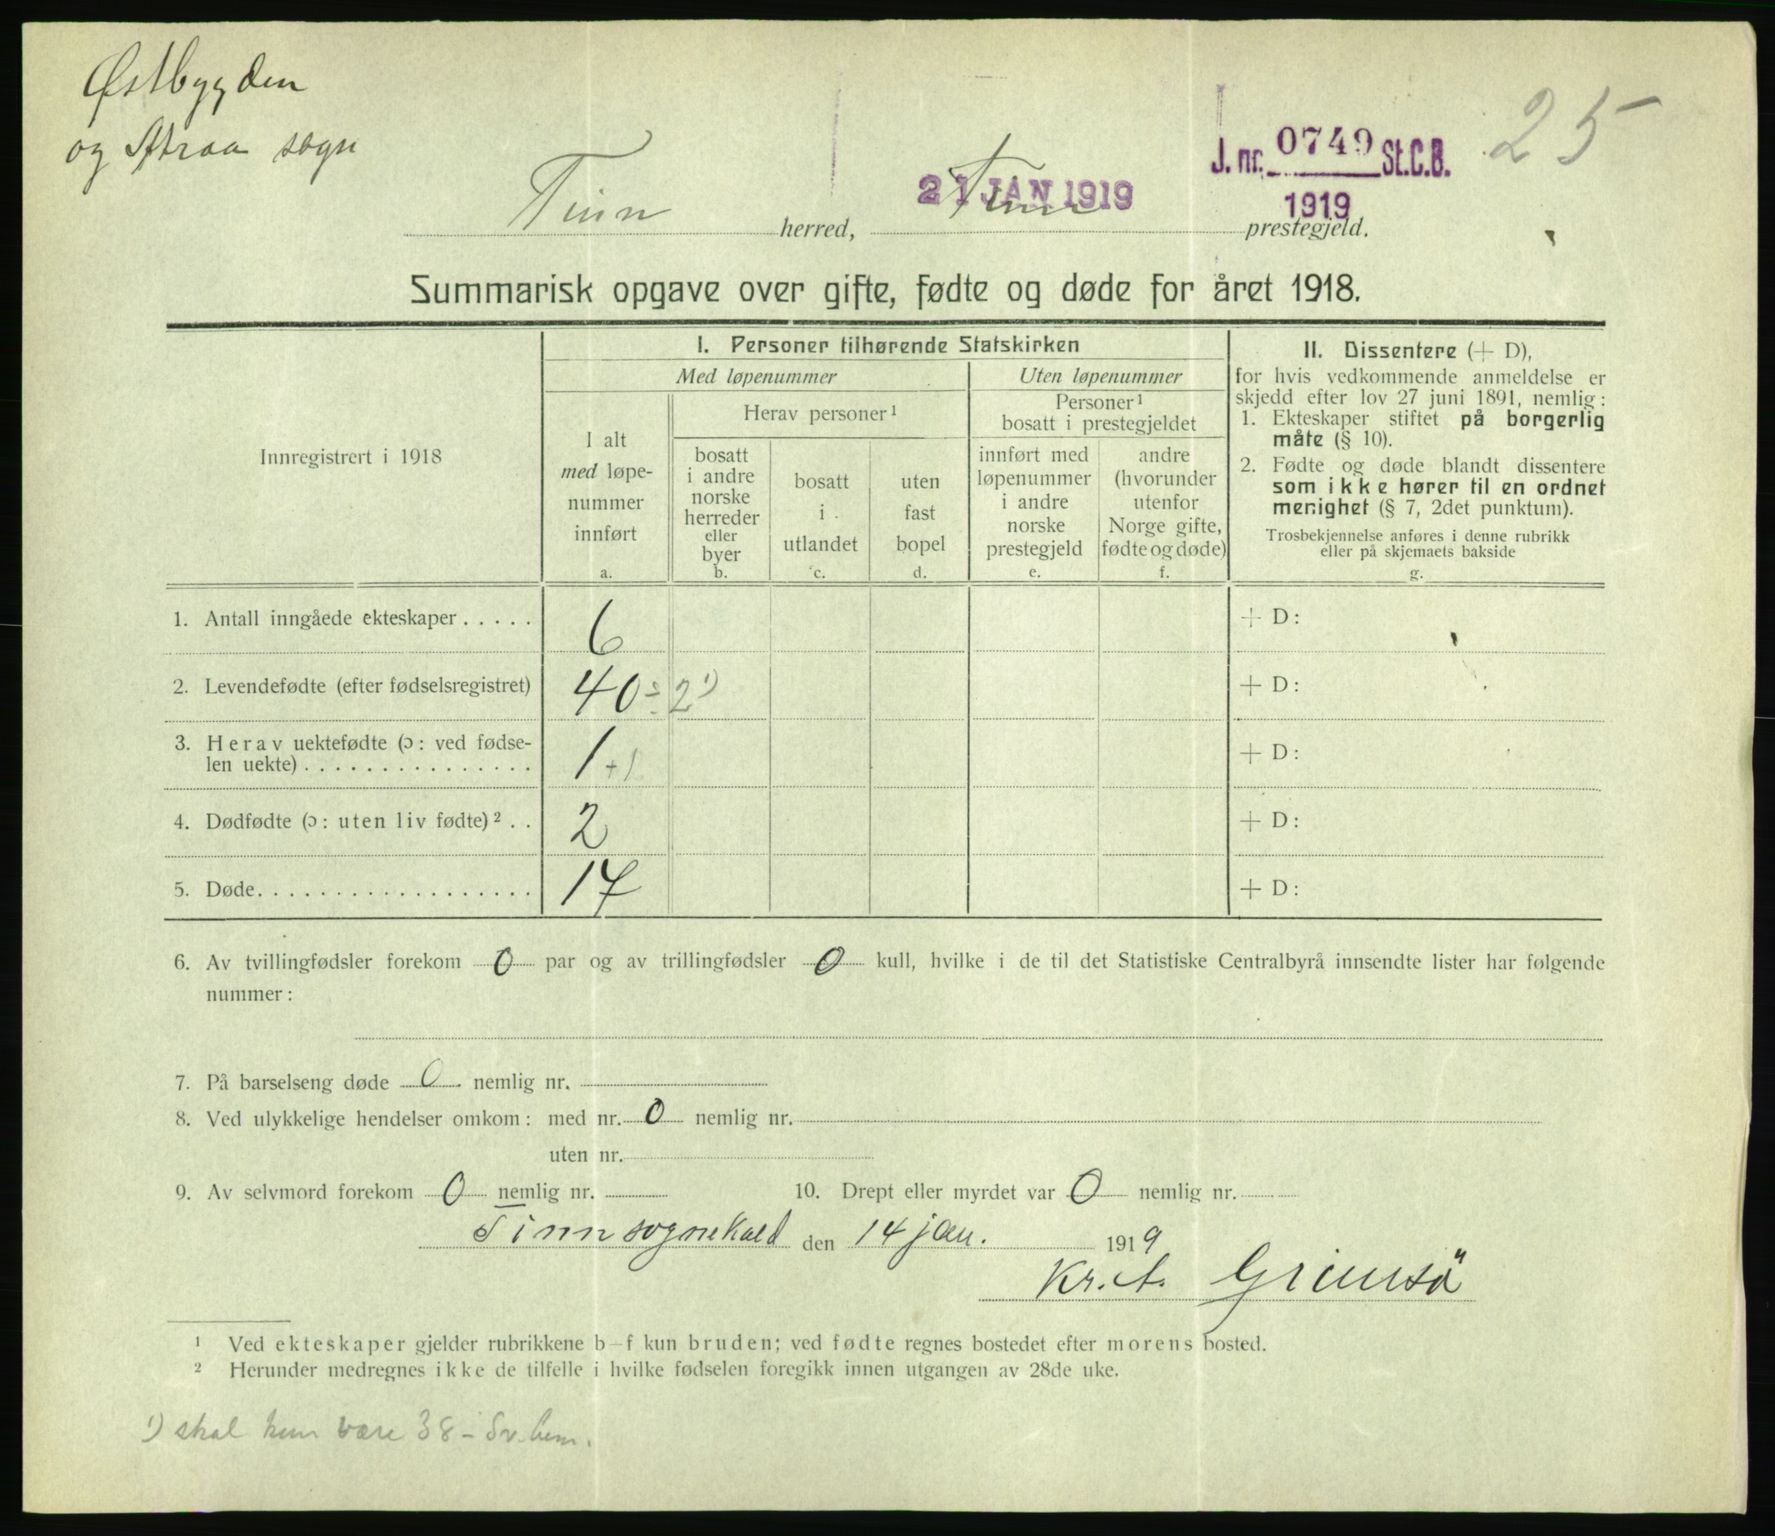 Østbygden
og Atraa sogn
25
J. nr. 0749 St.C.B.
1919
21 JAN 1919
Tinn herred, Tinn prestegjeld.
Summarisk opgave over gifte, fødte og døde for året 1918.
Innregistrert i 1918
I. Personer tilhørende Statskirken
Med løpenummer
I alt
med løpe-
nummer
innført
a.
Herav personer¹
bosatt
i andre
norske
herreder
eller
byer
b.
bosatt
i
utlandet
c.
uten
fast
bopel
d.
Uten løpenummer
Personer¹
bosatt i prestegjeldet
innført med
løpenummer
i andre
norske
prestegjeld
e.
andre
(hvorunder
utenfor
Norge gifte,
fødte og døde)
f.
II. Dissentere (+ D),
for hvis vedkommende anmeldelse er
skjedd efter lov 27 juni 1891, nemlig:
1. Ekteskaper stiftet på borgerlig
måte (§ 10).
2. Fødte og døde blandt dissentere
som ikke hører til en ordnet
menighet (§ 7, 2det punktum).
Trosbekjennelse anføres i denne rubrikk
eller på skjemaets bakside
g.
1. Antall inngåede ekteskaper ..... 6 + D:
2. Levendefødte (efter fødselsregistret) 40 ÷ 2 ¹) + D:
3. Herav uektefødte (ɔ: ved fødse-
len uekte) ............... 1 +1 + D:
4. Dødfødte (ɔ: uten liv fødte)² .. 2 + D:
5. Døde.................. 17 + D:
6. Av tvillingfødsler forekom 0 par og av trillingfødsler 0 kull, hvilke i de til det Statistiske Centralbyrå innsendte lister har følgende
nummer:
7. På barselseng døde 0 nemlig nr.
8. Ved ulykkelige hendelser omkom: med nr. 0 nemlig nr.
uten nr.
9. Av selvmord forekom 0 nemlig nr. 10. Drept eller myrdet var 0 nemlig nr.
Tinn sognekald den 14 jan. 1919
Kr. A. Grimsö
¹ Ved ekteskaper gjelder rubrikkene b–f kun bruden; ved fødte regnes bostedet efter morens bosted.
² Herunder medregnes ikke de tilfelle i hvilke fødselen foregikk innen utgangen av 28de uke.
¹) skal kun være 38 –